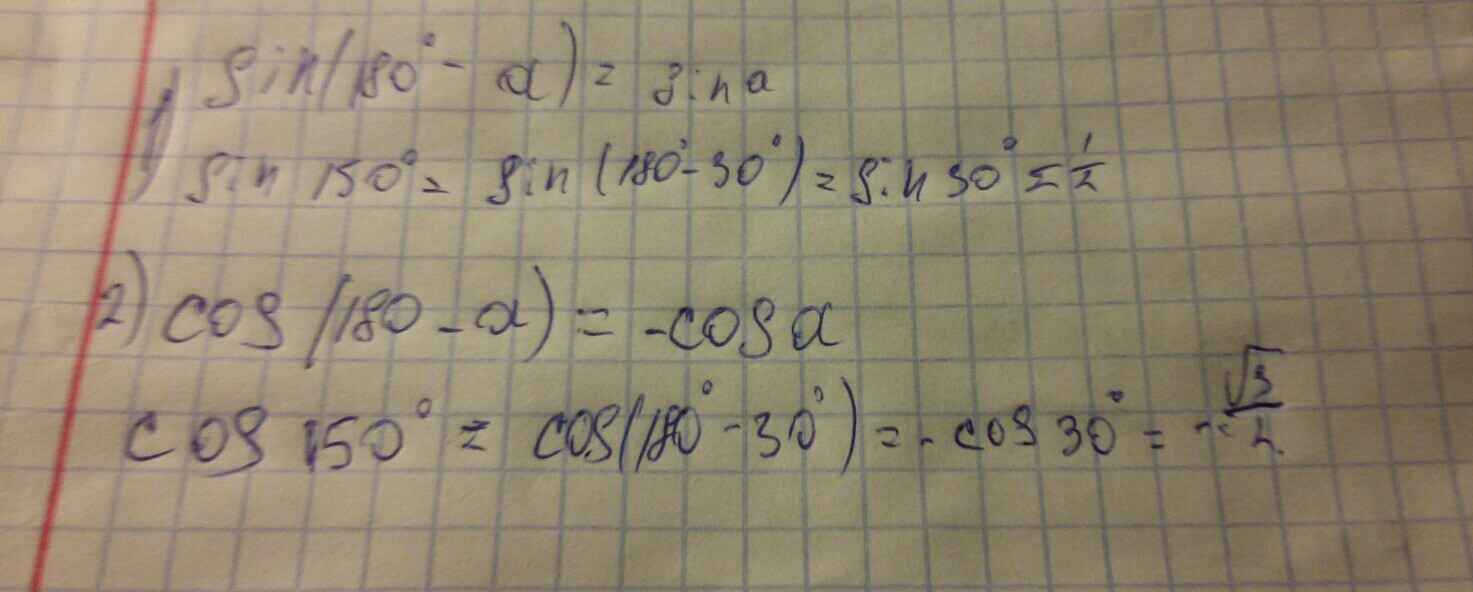 1) sin(180° - α) = sin α
sin 150° = sin (180° - 30°) = sin 30° = 1/2
2) cos (180 - α) = -cos α
cos 150° = cos(180° - 30°) = - cos 30° = - √3/2